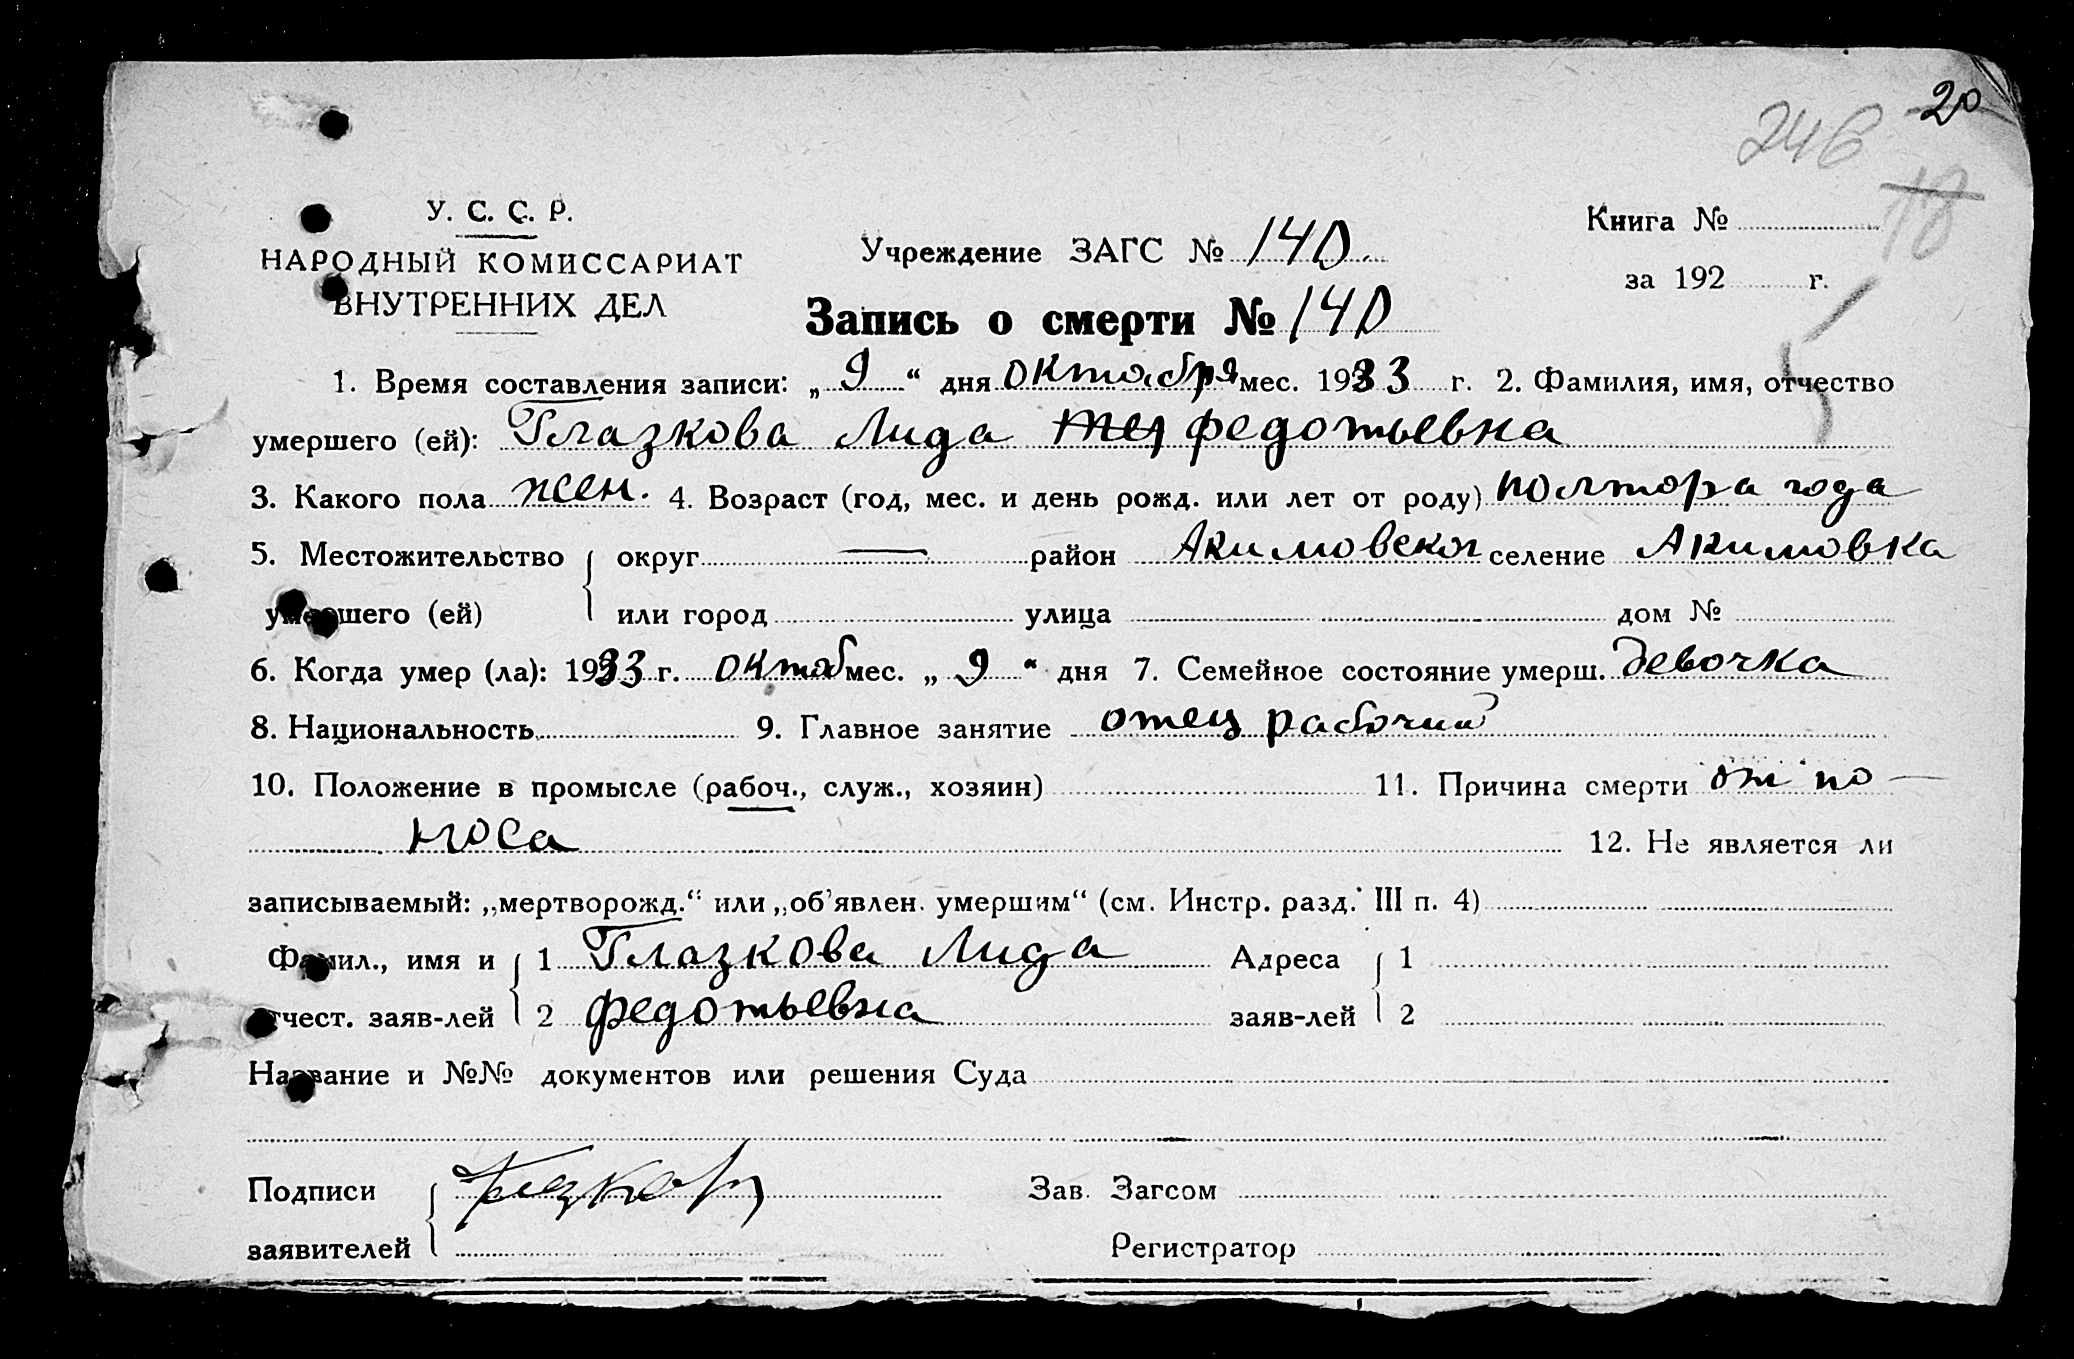 20
246
18
У. С. С. Р.
НАРОДНЫЙ КОМИССАРИАТ
ВНУТРЕННИХ ДЕЛ
Учреждение ЗАГС № 140.
Книга №
за 192 г.
Запись о смерти № 140
1. Время составления записи: „ 9 “ дня октября мес. 1933 г. 2. Фамилия, имя, отчество
умершего (ей): Глазкова Лида федотьевна
3. Какого пола жен. 4. Возраст (год, мес. и день рожд. или лет от роду) полтора года
5. Местожительство округ — район Акимовског селение Акимовка
умершего (ей) или город улица дом №
6. Когда умер (ла): 1933 г. октяб мес. „ 9 “ дня 7. Семейное состояние умерш. девочка
8. Национальность 9. Главное занятие отец рабочий
10. Положение в промысле (рабоч., служ., хозяин) 11. Причина смерти от по-
носа 12. Не является ли
записываемый: „мертворожд.“ или „об’явлен. умершим“ (см. Инстр. разд. III п. 4)
Фамил., имя и 1 Глазкова Лида Адреса 1
отчест. заяв-лей 2 федотьевна заяв-лей 2
Название и №№ документов или решения Суда
Подписи Зав. Загсом
заявителей Регистратор